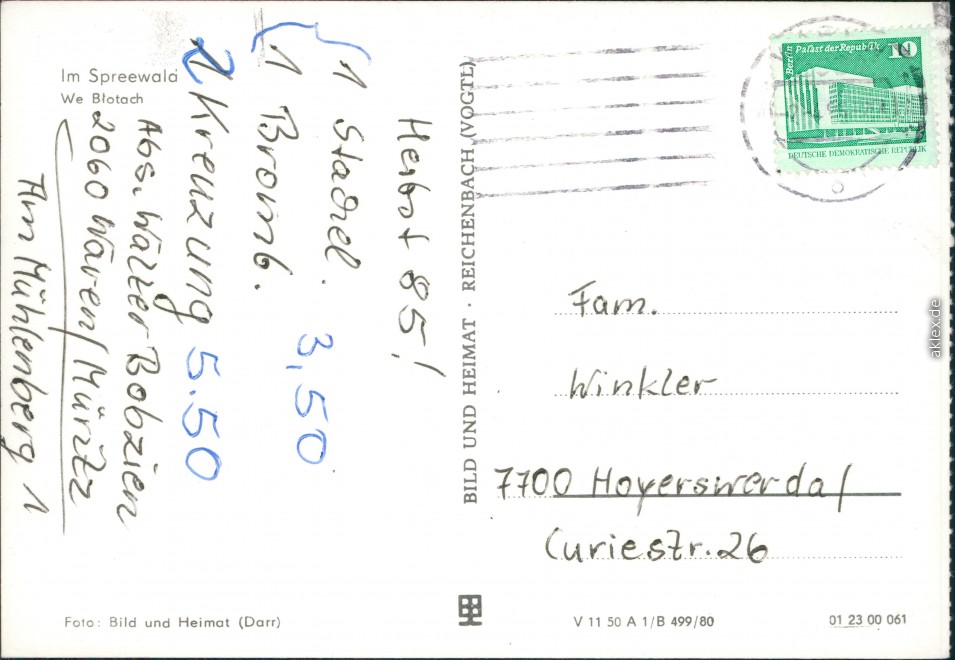 Im Spreewald
We Błotach
Herbst 85!
1 Stachel.
3,50
1 Bromb.
2 Kreuzung 5.50
Abs. Walter Bobzien
2060 Waren/Müritz
Am Mühlenberg 1
BILD UND HEIMAT · REICHENBACH (VOGTL)
Berlin Palast der Republik 10
DEUTSCHE DEMOKRATISCHE REPUBLIK
Fam.
Winkler
7700 Hoyerswerda/
Curiestr. 26
Foto: Bild und Heimat (Darr)
V 11 50 A 1/B 499/80
01 23 00 061
aklex.de